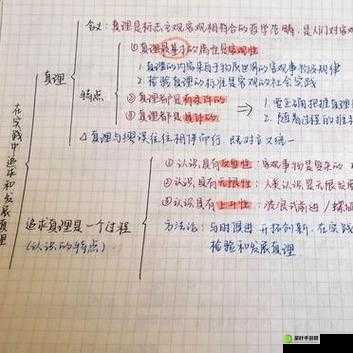 含义：真理是标志主观客观相符合的哲学范畴，是人们对客观
①真理最基本的属性是客观性
1.真理的内容来自于物质世界的客观事物及规律
2.检验真理的标准是客观的社会实践
真理
特点
②真理都是有条件的
③真理都是具体的
⇒
1.要正确把握真理
2.随着过程的推移
④真理与谬误往往相伴而行 既对立又统一
在实践中追求和发展真理
①认识具有反复性：客观事物是复杂的
②认识具有无限性：人类认识是无限发展
③认识具有上升性：波浪式前进/螺旋
追求真理是一个过程
(认识的特点)
方法论：与时俱进 开拓创新，在实践
检验和发展真理
菜叶手游网